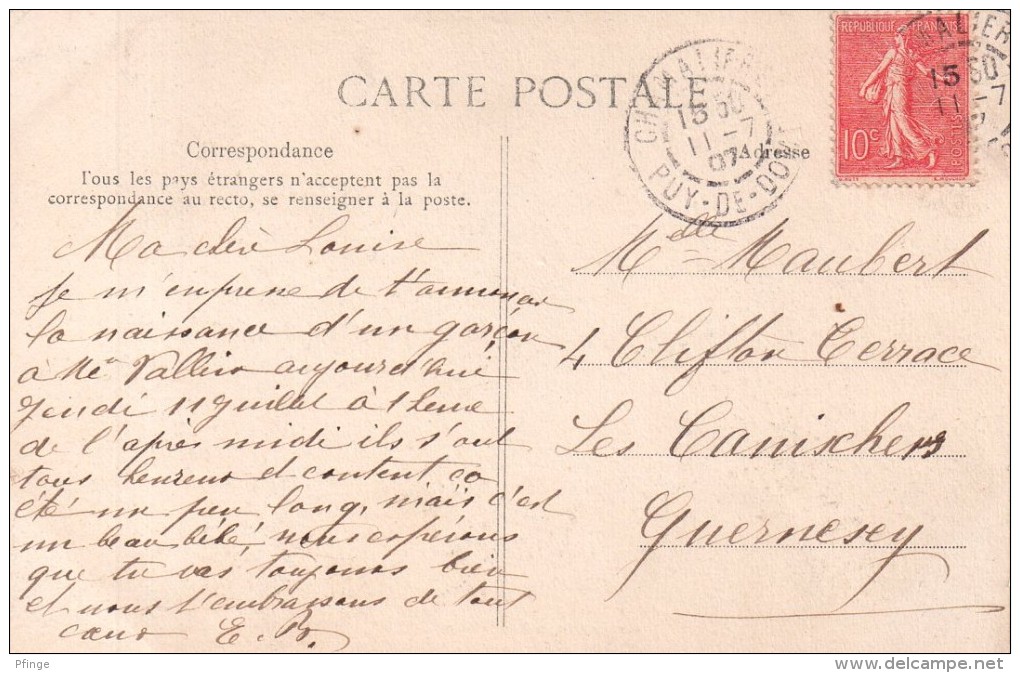 CARTE POSTALE
Correspondance
Tous les pays étrangers n'acceptent pas la
correspondance au recto, se renseigner à la poste.
Adresse
REPUBLIQUE FRANÇAISE
10c
POSTES
CHAMALIERES
15 50
11-7
07
PUY-DE-DOME
MALIER
15 50
11-7
Ma chère Louise
Je m'emprese de t'annoncer
la naissance d'un garçon
à Me Vallier aujourd'hui
Jeudi 11 Juillet à 1 heure
de l'après midi ils s'ont
tous heureux et content ça
été un peu long, mais c'est
un beau bébé, nous espérons
que tu vas toujours bien
et nous t'embrassons de tout
cœur E. B.
Melle Maubert
4 Clifton Terrace
Les Canichers
Guernesey
Pfinge
www.delcampe.net